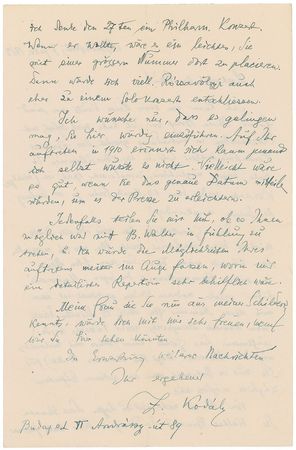 ich denke den 27ten ein Philharm. Konzert.
Wenn er wollte, wäre es ein leichtes, Sie
mit einer grössern Nummer dort zu placieren.
Dann würde sich viell. Rózsavölgyi auch
eher zu einem Solokonzert entschliessen.
Ich wünsche nur, dass es gelingen
mag, Sie hier würdig einzuführen. Auf Ihr
auftreten in 1910 erinnert sich kaum jemand
ich selbst wusste es nicht. Vielleicht wäre
es gut wenn Sie das genaue Datum mitteilen
würden, um es der Presse zu erleichtern.
Jedenfalls teilen Sie mir mit, ob es Ihnen
möglich war mit B. Walter in fühlung zu
treten, u. ich würde die Möglichkeiten Ihres
auftretens weiter ins Auge fassen, worin mir
ein detaillirtes Repertoir sehr behilflich wäre.
Meine frau die Sie nur aus meiner Schilderung
kennt, würde sich mit mir sehr freuen, wenn
wir Sie hier sehen könnten.
In Erwartung weiterer Nachrichten
Ihr ergebener
Z. Kodály
Budapest VI Andrássy-út 89